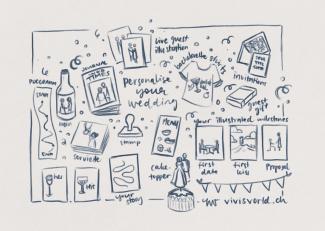 live guest
illustration
bachelorette shirts
SAVE
THE
DATE
invitations
JOURNAL
TIMES
personalise
your
wedding
label
guest
gift
serviette
stamp
MENU
your illustrated milestones
first
date
first
kiss
Proposal
her
his
your
story
cake
topper
vivisvorld.ch